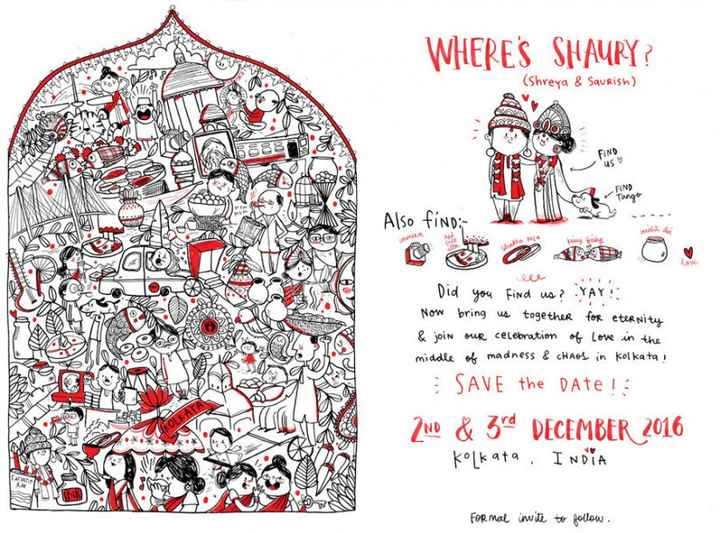 WHERE'S SHAURY?
(Shreya & SAURISH)
FIND
US
FIND
Tango
Also find:-
camera
shakha pola
mishti doi
Love
Did you Find us? YAY!
Now bring us together for eternity
& join our celebration of love in the
middle of madness & CHAOS in Kolkata!
SAVE the DATE!
2ND & 3rd DECEMBER 2016
Kolkata, INDIA
FORMAL invite to follow.
KOLKATA